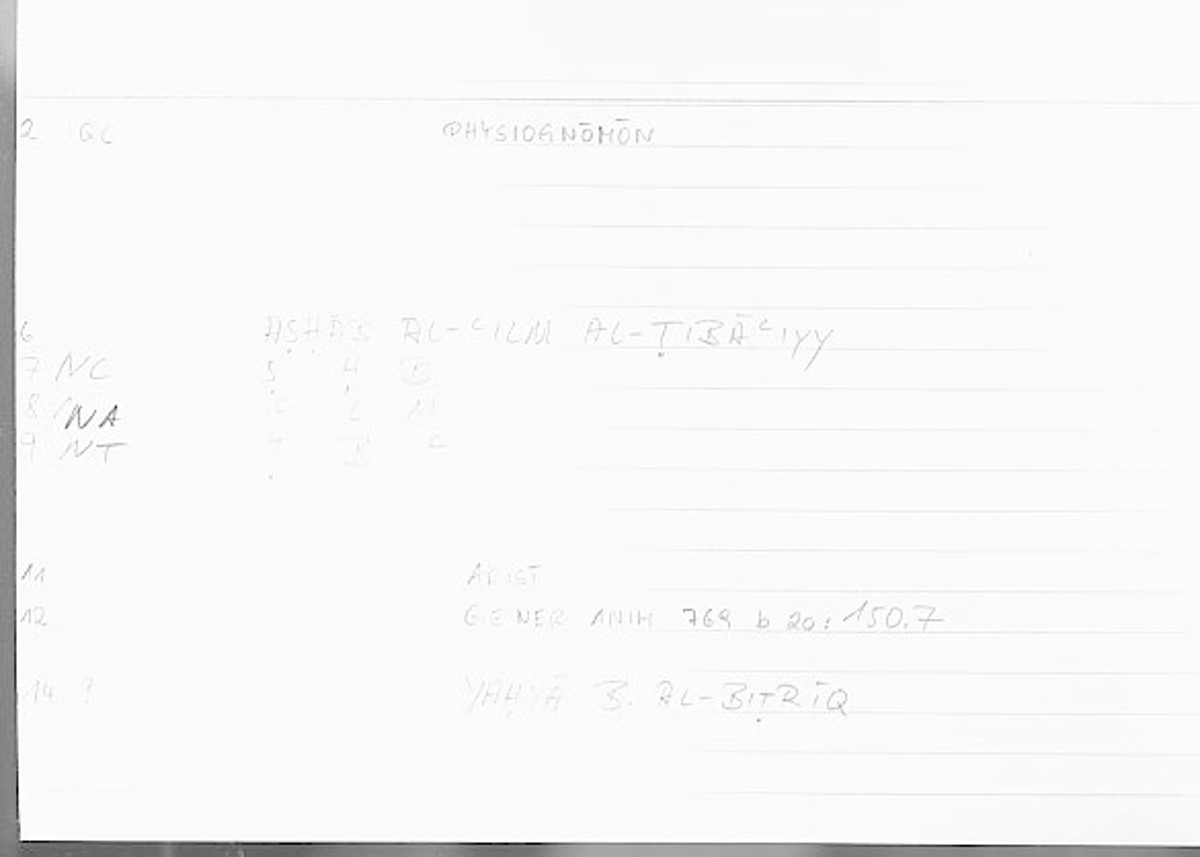 2 GC PHYSIOGNŌMŌN
6 AṢḤĀB AL-ʿILM AL-ṬIBĀʿIYY
7 NC Ṣ Ḥ B
8 NA ʿ L M
9 NT Ṭ B ʿ
11 ARIST
12 GENER ANIM 769 b 20: 150.7
14 ? YAḤYĀ B. AL-BIṬRĪQ